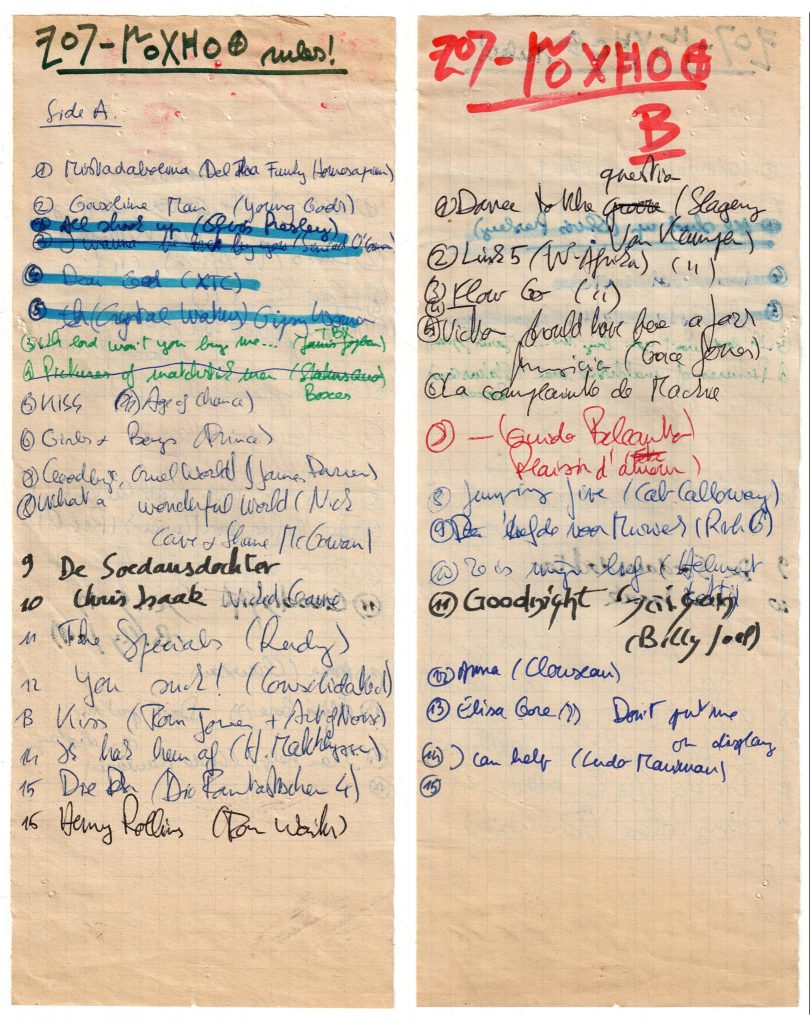 Z07-μOXHO⊕ rules!
Side A.
① Mistadabolina (Del Tha Funky Homosapien)
② Gasoline Man (Young Gods)
All shook up (Elvis Presley)
③ I wanna be back by you (Sinead O'Connor)
④ Dear God (XTC)
⑤ (Crystal Waters) Gipsy Woman
③ Oh lord won't you buy me... (Janis Joplin)
④ Pictures of matchstick men (Status Quo)
Boxes
⑤ KISS (Age of Chance)
⑥ Girls & Boys (Prince)
⑦ Goodbye, cruel World (James Darren)
⑧ What a wonderful world (Nick
Cave & Shane McGowan)
9 De Soedansdochter
10 Chris Isaak Wicked Game
11 The Specials (Rudy)
12 You suck! (Consolidated)
13 Kiss (Tom Jones + Art of Noise)
14 It has been af (H. )
15 Die Da (Die Fantastischen 4)
16 Henry Rollins (Tom Waits)
Z07-μOXHO⊕
B
question
① Dance to the groove (Slagerij
Van Kampen)
② Link 5 (W-Afrika) (")
③ Flow Go (")
④
⑤ Victor should have been a jazz
musician (Grace Jones)
⑥ La complainte de Mackie
⑦ — (Guido Belcanto)
Plaisir d'amour)
⑧ Jumping Jive (Cab Calloway)
⑨ De liefde voor Muziek (Rah 6)
⑩ Zo is mijn (Helmut
⑪ Goodnight Saigon
(Billy Joel)
⑫ Anna (Clouseau)
⑬ Elisa Gore (?) Don't put me
on display
⑭ I can help (Ludo Mariman)
⑮